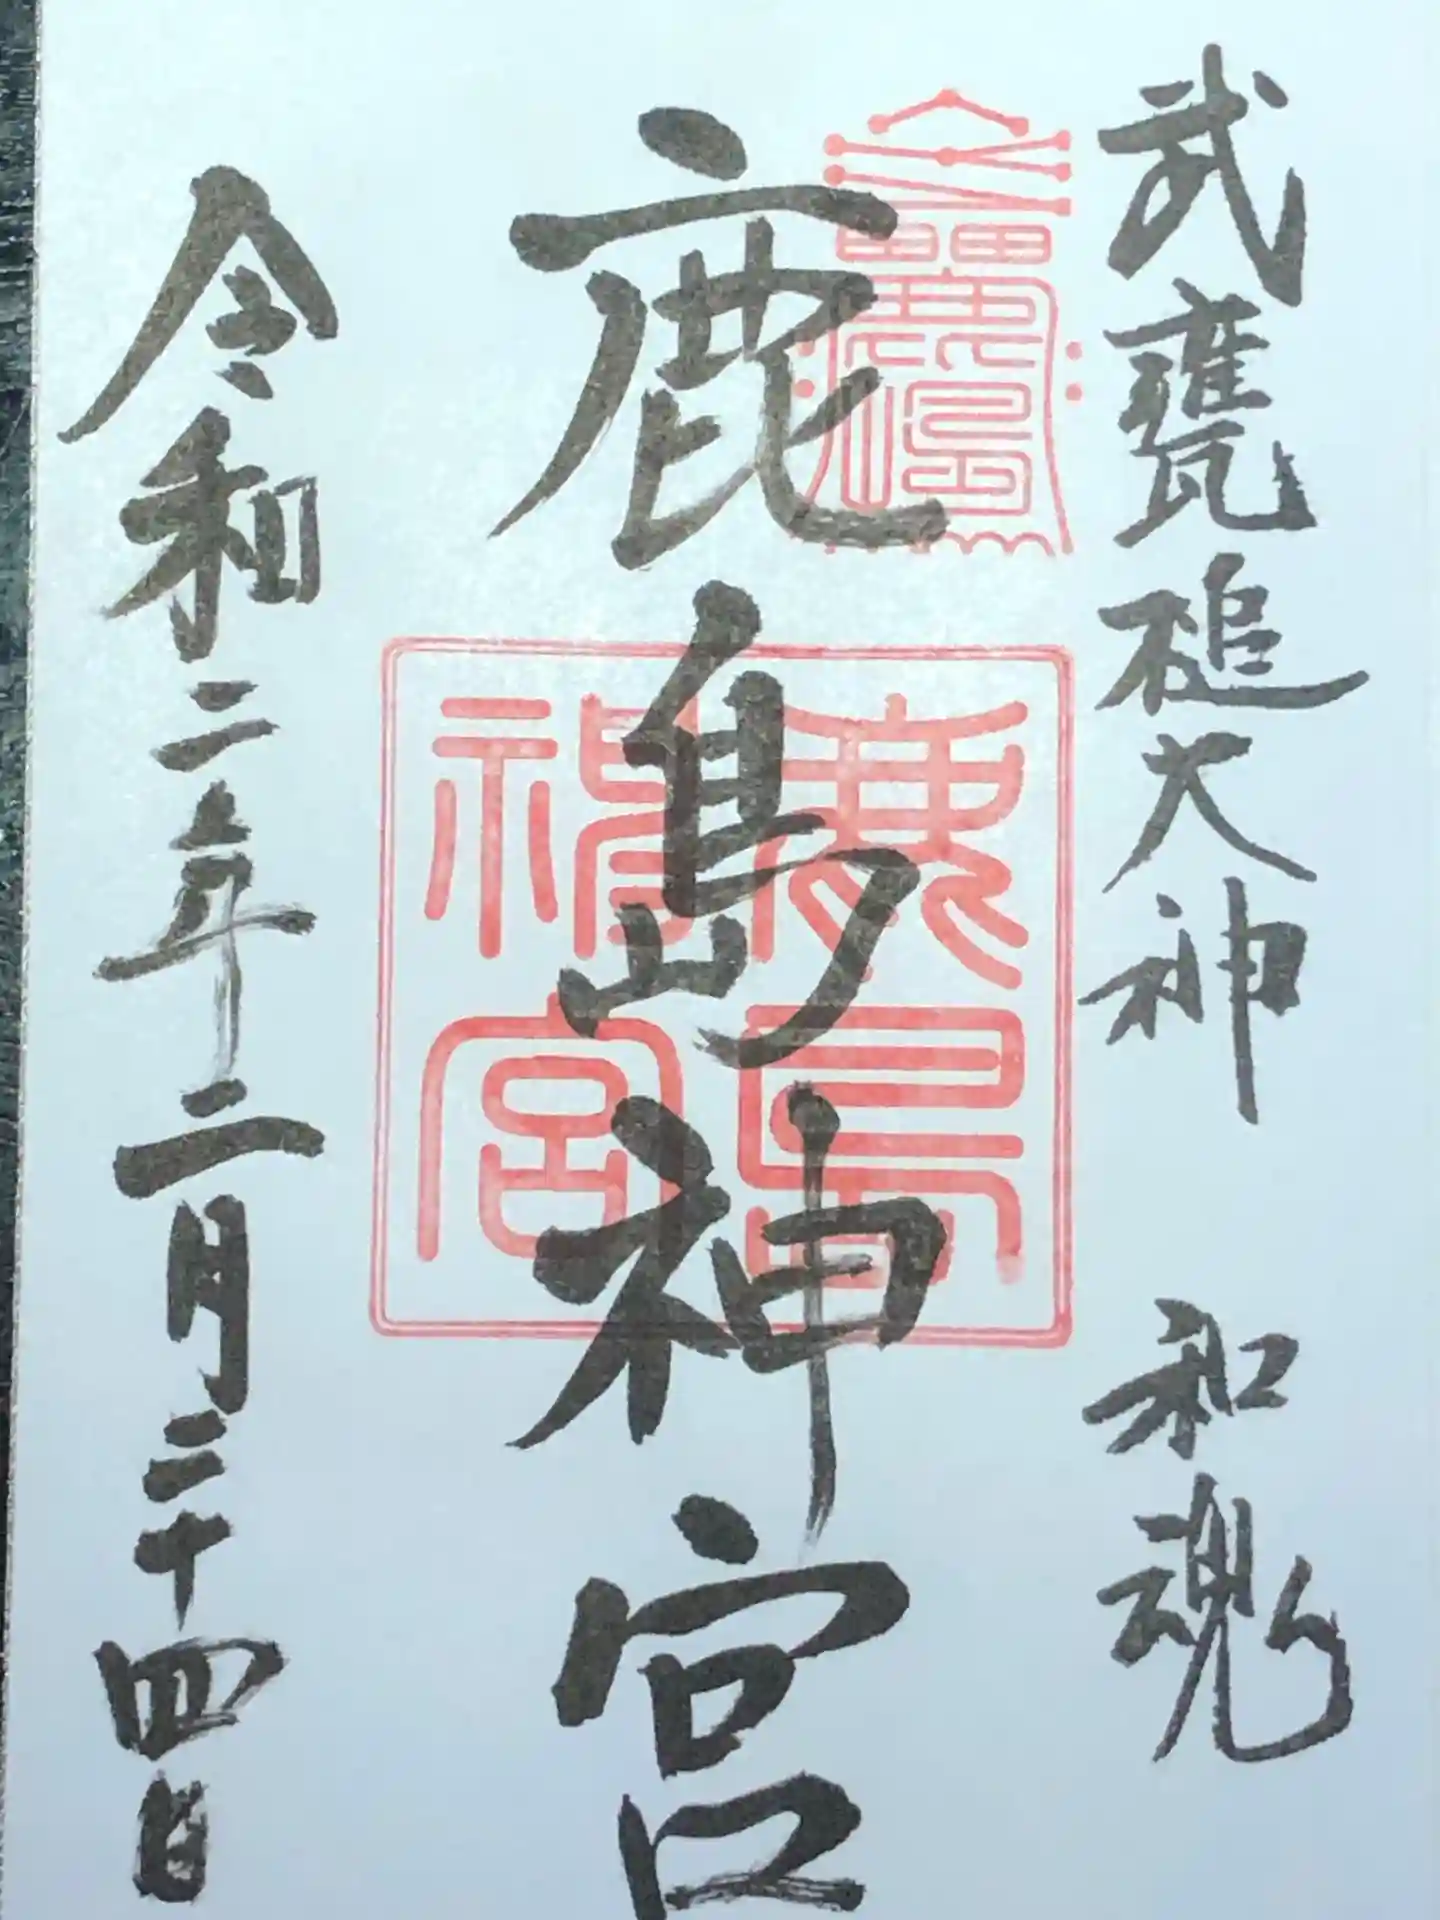 武甕槌大神 和魂
鹿島神宮
鹿島神宮
令和二年二月二十四日